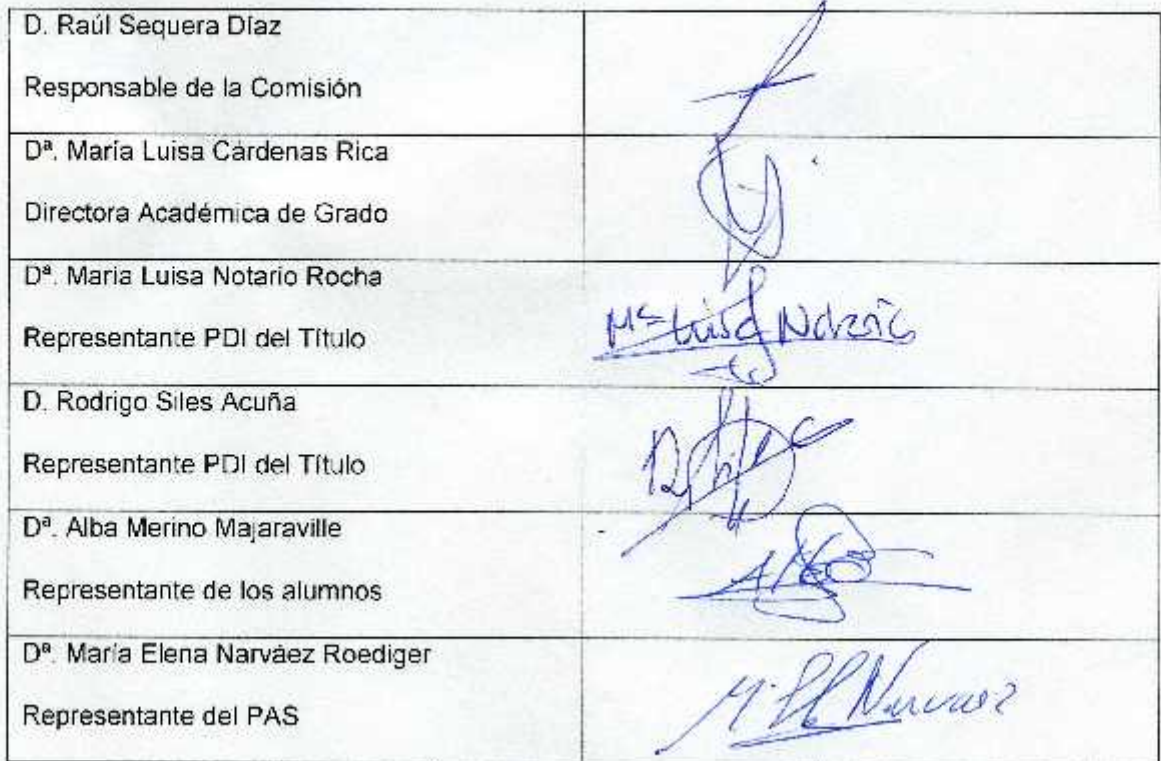 D. Raúl Sequera Díaz
Responsable de la Comisión
Dª. María Luisa Cárdenas Rica
Directora Académica de Grado
Dª. Maria Luisa Notario Rocha
Representante PDI del Título
Mª Luisa Notario
D. Rodrigo Siles Acuña
Representante PDI del Título
Dª. Alba Merino Majaraville
Representante de los alumnos
Dª. María Elena Narváez Roediger
Representante del PAS
Narvaez